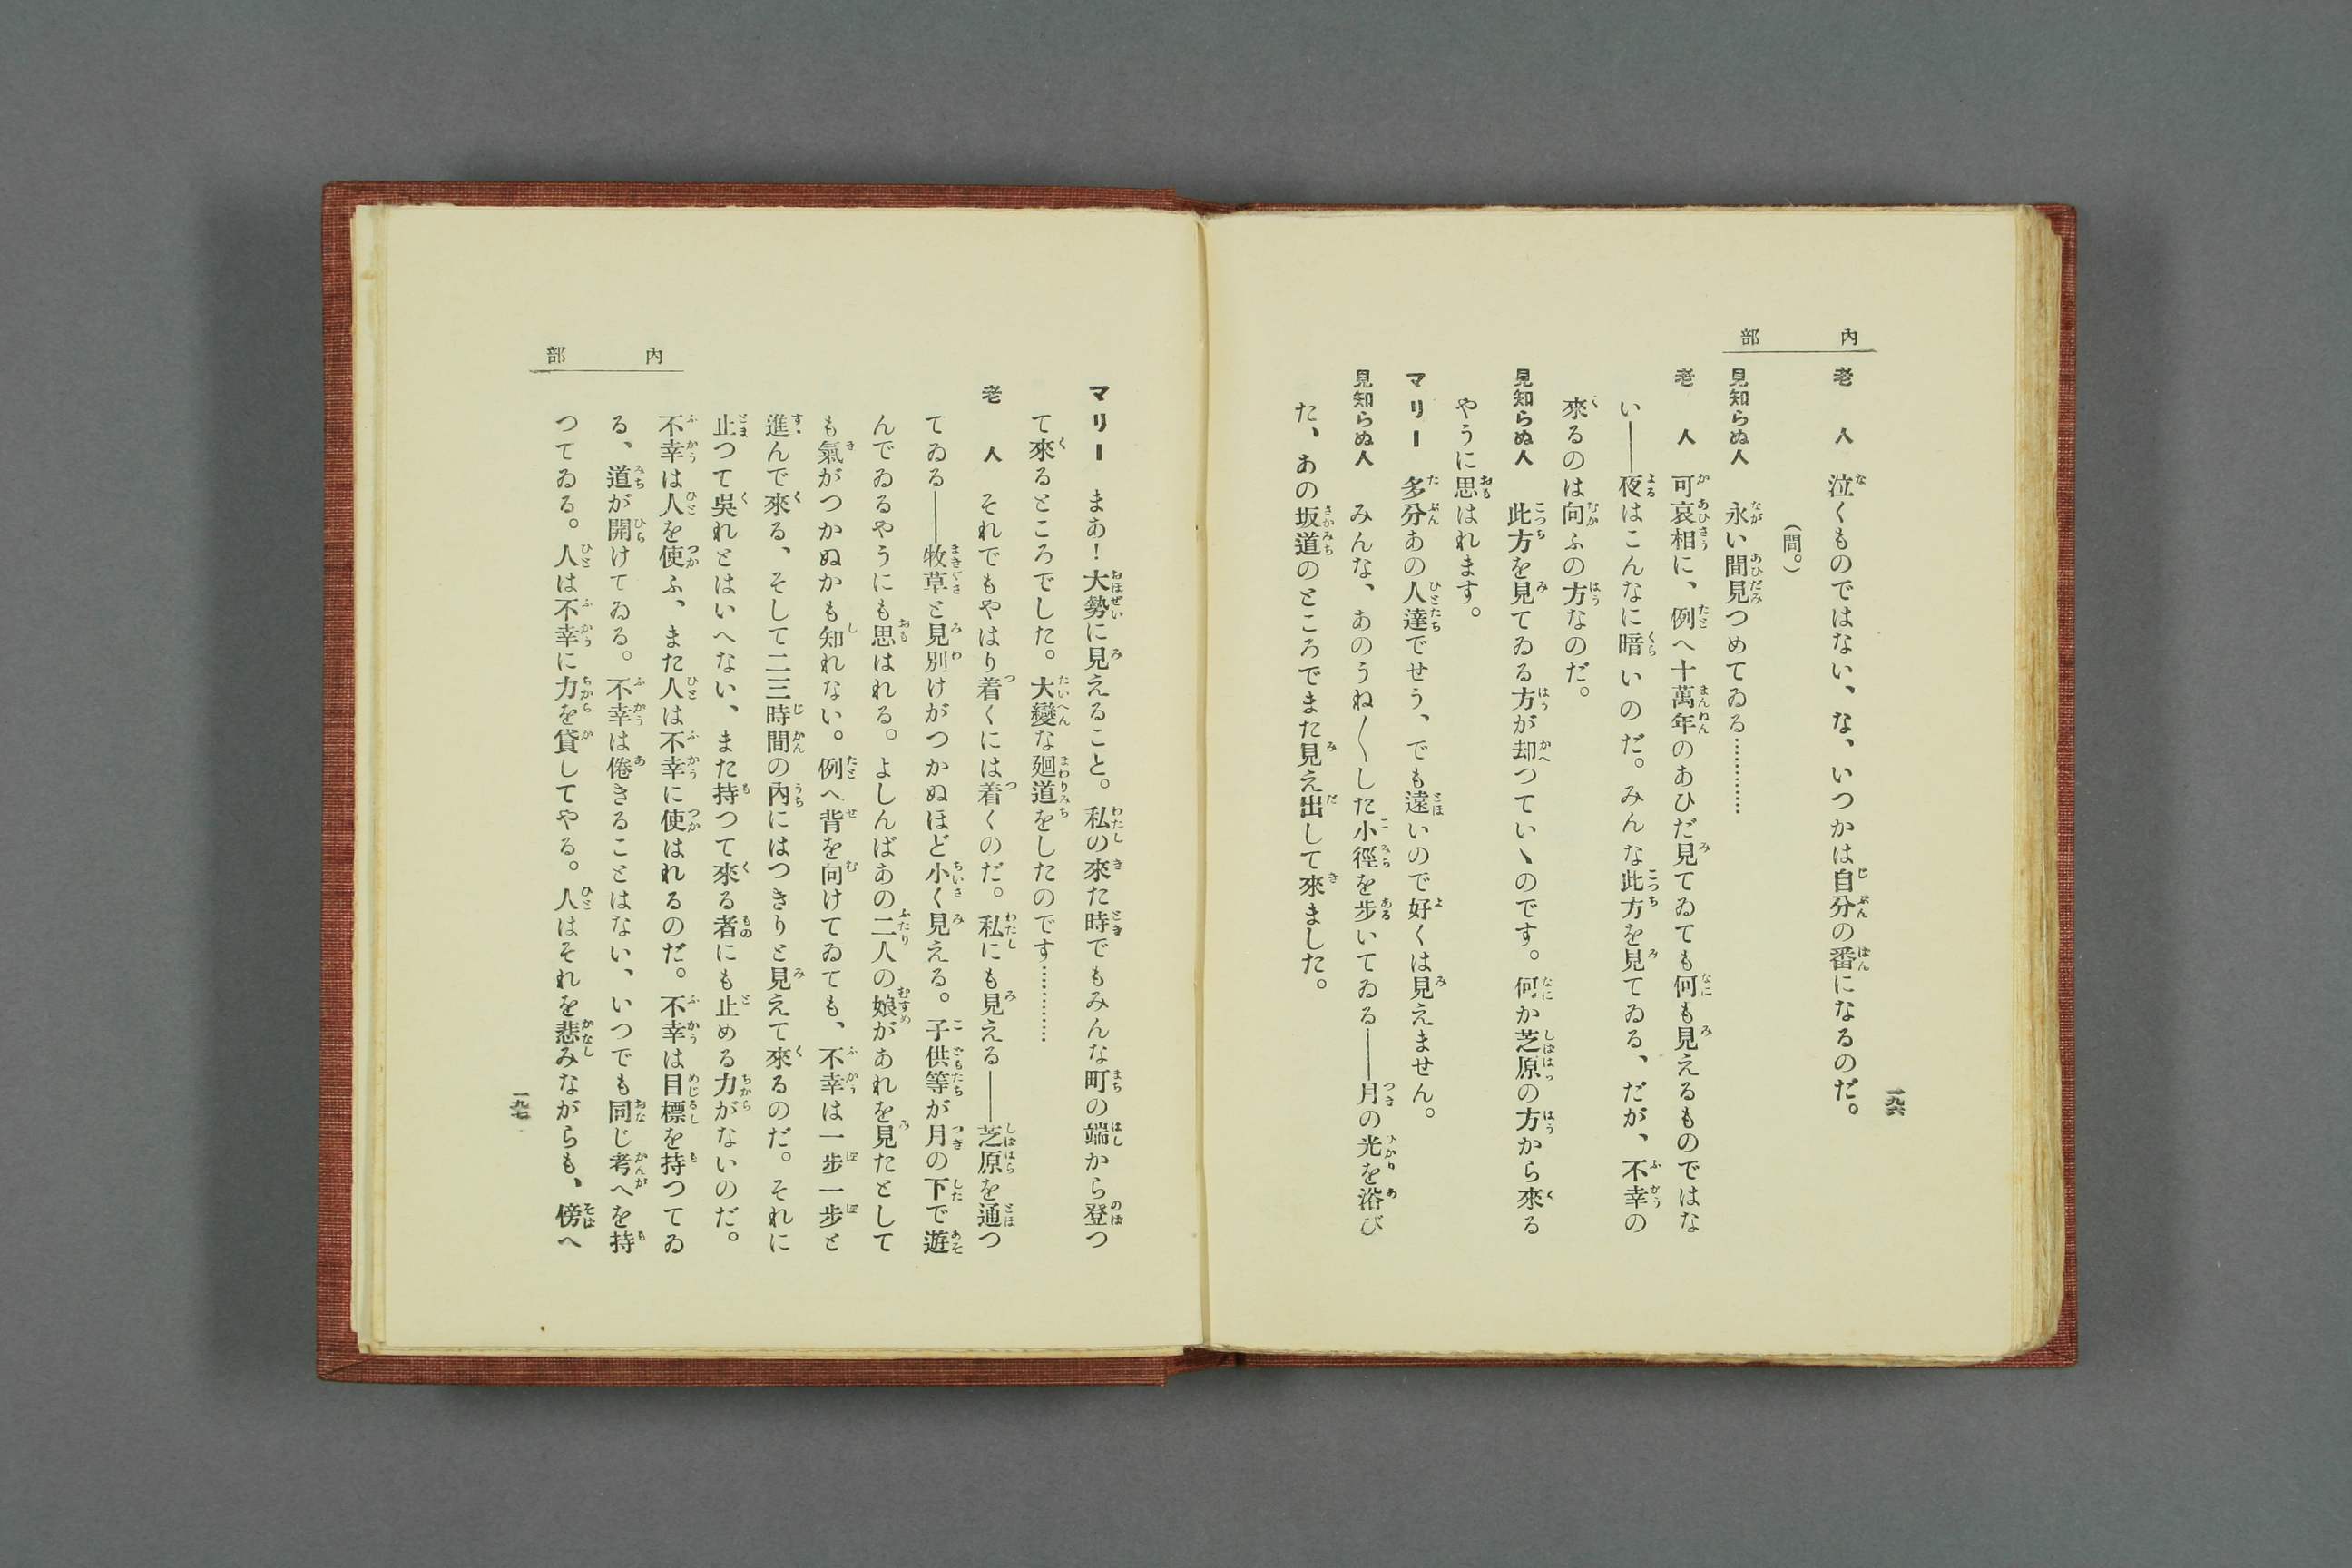 內部
一九六
老人 泣くものではない、な、いつかは自分の番になるのだ。
(間。)
見知らぬ人 永い間見つめてゐる…………
老人 可哀相に、例へ十萬年のあひだ見てゐても何も見えるものではな
い――夜はこんなに暗いのだ。みんな此方を見てゐる、だが、不幸の
來るのは向ふの方なのだ。
見知らぬ人 此方を見てゐる方が却つていゝのです。何か芝原の方から來る
やうに思はれます。
マリー 多分あの人達でせう、でも遠いので好くは見えません。
見知らぬ人 みんな、あのうね〱した小徑を步いてゐる――月の光を浴び
た、あの坂道のところでまた見え出して來ました。
マリー まあ!大勢に見えること。私の來た時でもみんな町の端から登つ
て來るところでした。大變な廻道をしたのです…………
老人 それでもやはり着くには着くのだ。私にも見える――芝原を通つ
てゐる――牧草と見別けがつかぬほど小く見える。子供等が月の下で遊
んでゐるやうにも思はれる。よしんばあの二人の娘があれを見たとして
も氣がつかぬかも知れない。例へ背を向けてゐても、不幸は一步一步と
進んで來る、そして二三時間の內にはつきりと見えて來るのだ。それに
止つて吳れとはいへない、また持つて來る者にも止める力がないのだ。
不幸は人を使ふ、また人は不幸に使はれるのだ。不幸は目標を持つてゐ
る、道が開けてゐる。不幸は倦きることはない、いつでも同じ考へを持
つてゐる。人は不幸に力を貸してやる。人はそれを悲みながらも、傍へ
內部
一九七